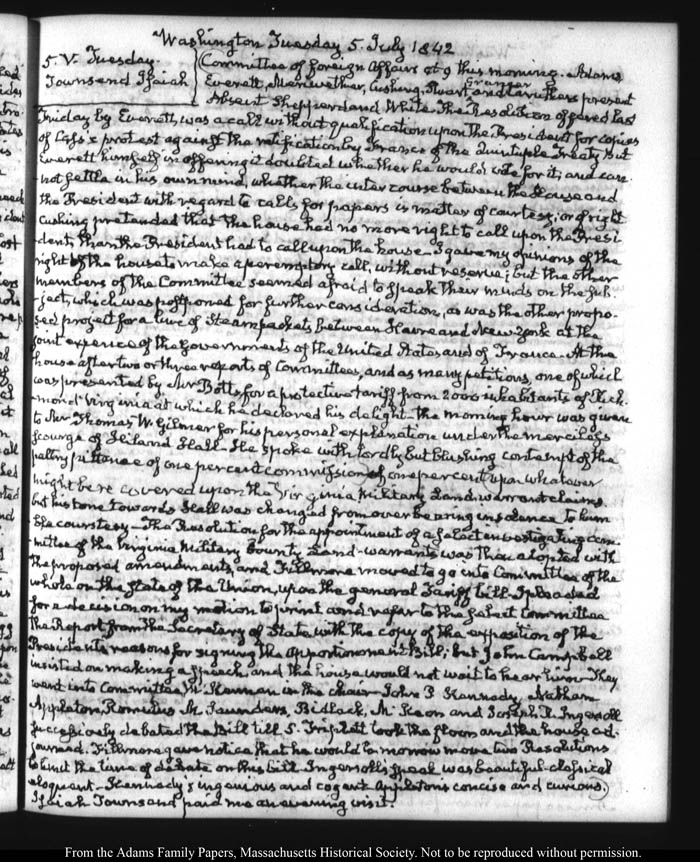 Washington Tuesday 5. July 1842
5. V. Tuesday. Committee of foreign Affairs at 9 this morning. Adams
Townsend Isaiah Everett, Meriwether, Cushing, Granger Stuart and Caruthers present
Absent Shepperd and White. The Resolution offered last
Friday by Everett, was a call without qualification upon the President for copies
of Cass's protest against the ratification by France of the Quintuple Treaty but
Everett himself in offering it doubted whether he would vote for it; and can
not settle in his own mind, whether the intercourse between the House and
the President with regard to calls for papers is matter of courtesy, or of right
Cushing pretended that the house had no more right to call upon the Presi-
dent, than the President had to call upon the house. I gave my opinions of the
right of the house to make a peremptory call, without reserve; but the other
members of the Committee seemed afraid to speak their minds on the sub-
ject, which was postponed for further consideration, as was the other propo-
sed project for a line of Steam packets between Havre and New York at the
joint expence of the Governments of the United States and of France. At the
house after two or three reports of Committees, and as many petitions, one of which
was presented by Mr Botts for a protective tariff from 2000 inhabitants of Rich-
mond Virginia at which he declared his delight. The morning hour was given
to Mr Thomas W. Gilmer for his personal explanation under the merciless
scourge of Hiland Hall. He spoke with lordly but blushing contempt of the
paltry pittance of one per cent commission of one per cent upon whatever
might be recovered upon the Virginia Military Land warrant claims
but his tone towards Hall was changed from overbearing insolence to hum-
ble courtesy. The Resolution for the appointment of a select investigating com-
mittee of the Virginia Military Bounty Land-warrants was then adopted with
the proposed amendments, and Fillmore moved to go into Committee of the
whole on the state of the Union, upon the general Tariff bill. I pleaded
for a decision on my motion to print and refer to the select Committee
the Report from the Secretary of State with the copy of the exposition of the
Presidents reasons for signing the Apportionment Bill; but John Campbell
insisted on making a speech, and the house would not wait to hear him. They
went into Committee, McKennan in the chair. John P. Kennedy, Nathan
Appleton, Romulus M. Saunders, Bidlack, McKeon and Joseph R. Ingersoll
successively debated the Bill till 5. Triplett took the floor and the house ad-
journed. Fillmore gave notice that he would to morrow move two Resolutions
to limit the time of debate on this bill. Ingersoll's speech was beautiful classical
eloquent. Kennedy's ingenious and cogent Appletons concise and curious.
Isaiah Townsend paid me an evening visit.
From the Adams Family Papers, Massachusetts Historical Society. Not to be reproduced without permission.